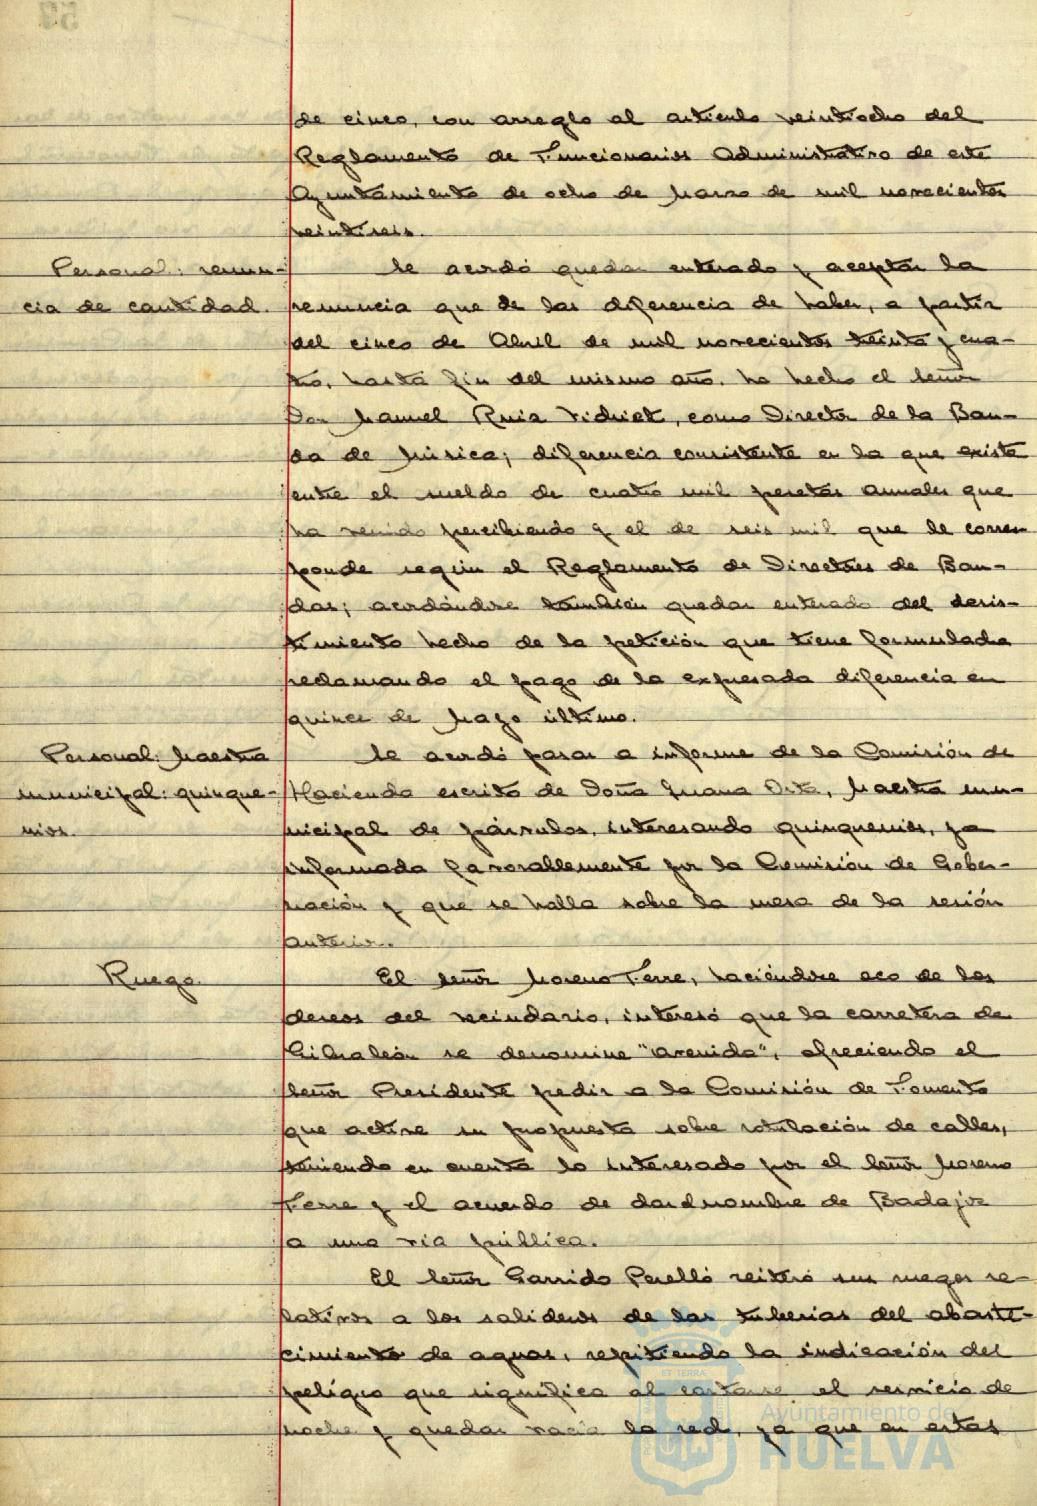 de cinco, con arreglo al artículo veintiocho del
Reglamento de Funcionarios Administrativo de este
Ayuntamiento de ocho de Marzo de mil novecientos
veintiseis.
Personal: renun-
cia de cantidad.
Se acordó quedar enterado y aceptar la
renuncia que de las diferencia de haber, a partir
del cinco de Abril de mil novecientos treinta y cua-
tro, hasta fin del mismo año, ha hecho el Señor
Don Manuel Ruiz Vidriet, como Director de la Ban-
da de Música; diferencia consistente en la que existe
entre el sueldo de cuatro mil pesetas anuales que
ha venido percibiendo y el de seis mil que le corres-
ponde según el Reglamento de Directores de Ban-
das; acordándose también quedar enterado del desis-
timiento hecho de la petición que tiene formulada
reclamando el pago de la expresada diferencia en
quince de Mayo último.
Personal: Maestra
municipal: quinque-
nios.
Se acordó pasar a informe de la Comisión de
Hacienda escrito de Doña Juana Orta, Maestra mu-
nicipal de párvulos, interesando quinquenios, ya
informada favorablemente por la Comisión de Gober-
nación y que se halla sobre la mesa de la sesión
anterior.
Ruego.
El Señor Moreno Ferre, haciéndose eco de los
deseos del vecindario, interesó que la carretera de
Gibraleón se denomine "avenida", ofreciendo el
Señor Presidente pedir a la Comisión de Fomento
que active su propuesta sobre rotulación de calles,
teniendo en cuenta lo interesado por el Señor Moreno
Ferre y el acuerdo de dar nombre de Badajoz
a una vía pública.
El Señor Garrido Perelló reiteró sus ruegos re-
lativos a los salideros de las tuberias del abaste-
cimiento de aguas, repitiendo la indicación del
peligro que significa al cortarse el servicio de
noche y quedar vacia la red, ya que en estas
Ayuntamiento de
HUELVA